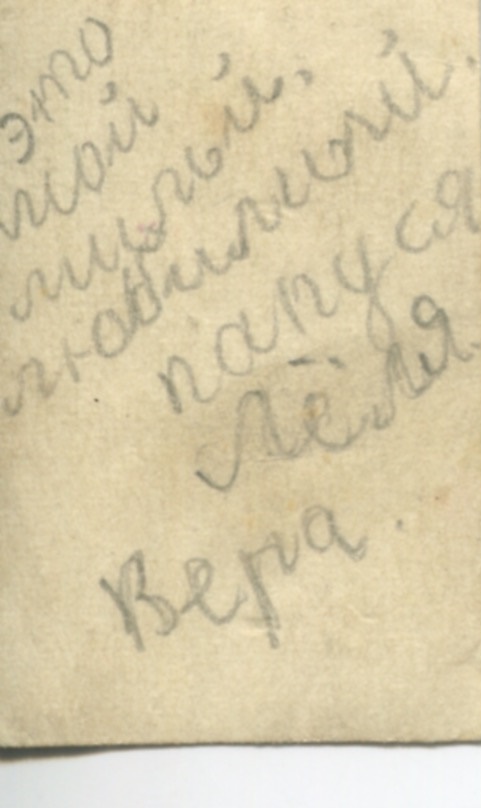 это
мой
милый,
любимый.
папуся
Лёля.
Вера.